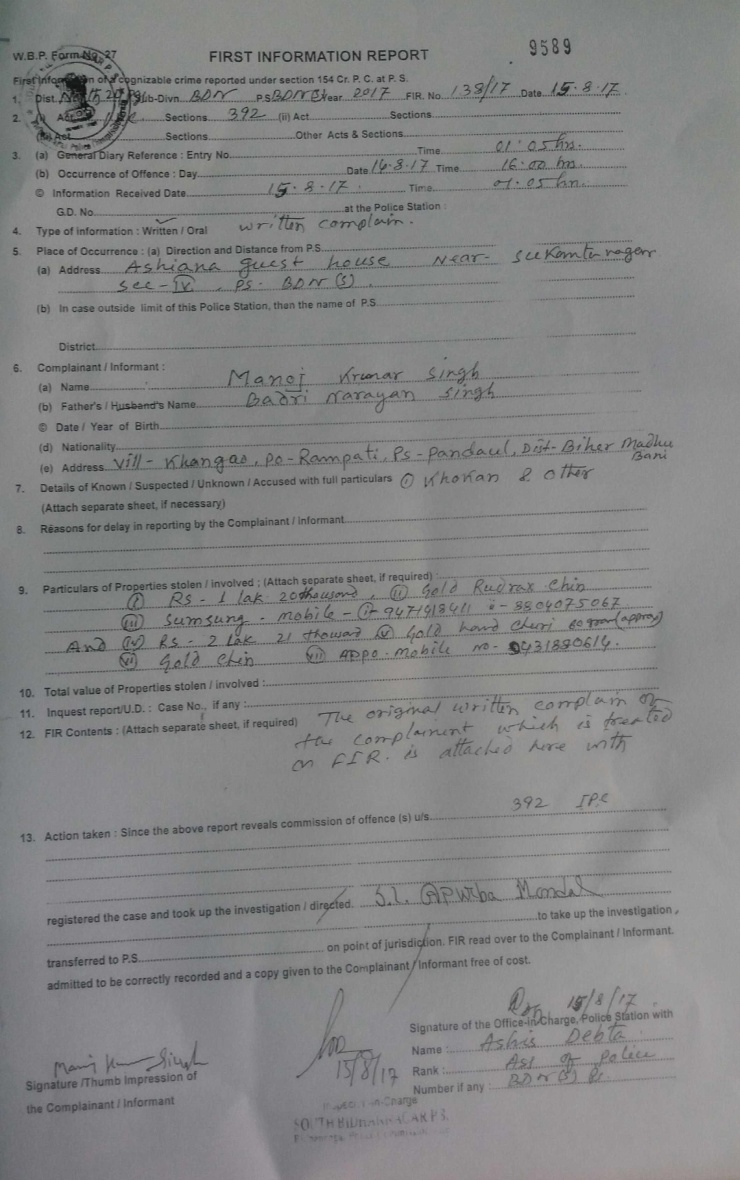 9589
W.B.P. Form No. 27
FIRST INFORMATION REPORT
First Information of a cognizable crime reported under section 154 Cr. P. C. at P. S.
1. Dist. North 24 Pgs Sub-Divn. BDN P.S BDN(S) Year 2017 FIR. No. 138/17 Date 15.8.17.
2. (i) Act Sections 392 (ii) Act Sections
(iii) Act Sections Other Acts & Sections
3. (a) General Diary Reference : Entry No. Time 01:05 hrs.
(b) Occurrence of Offence : Day Date 14.8.17 Time 16.00 hrs.
© Information Received Date 15.8.17. Time 01.05 hrs.
G.D. No. at the Police Station :
4. Type of information : Written / Oral written complain.
5. Place of Occurrence : (a) Direction and Distance from P.S.
(a) Address Ashiana guest house Near- Sukantu nagar
Sec-IV, PS- BDN(S).
(b) In case outside limit of this Police Station, then the name of P.S
District
6. Complainant / Informant :
(a) Name Manoj Kumar Singh
(b) Father's / Husband's Name Badri Narayan Singh
© Date / Year of Birth
(d) Nationality
(e) Address Vill- Khangao, PO-Rampati, Ps-Pandaul, Dist-Biher Madhu
Bani
7. Details of Known / Suspected / Unknown / Accused with full particulars ① Khokan & other
(Attach separate sheet, if necessary)
8. Reasons for delay in reporting by the Complainant / Informant
9. Particulars of Properties stolen / involved : (Attach separate sheet, if required)
(i) Rs - 1 lak 20 thousand, (ii) Gold Rudrax Chin
(iii) Sumsung - mobile - 8804075067
And (iv) Rs - 2 lak 21 thousand (v) Gold hand Churi 60 gram (approx)
(vi) Gold Chin (vii) APPO - mobile no- 9431880614.
10. Total value of Properties stolen / involved :
11. Inquest report/U.D. : Case No., if any :
12. FIR Contents : (Attach separate sheet, if required) The original written complain of
the complainent which is treated
as FIR. is attached here with
13. Action taken : Since the above report reveals commission of offence (s) u/s. 392 IPC
registered the case and took up the investigation / directed. S.I. Apurba Mondal
to take up the investigation,
transferred to P.S. on point of jurisdiction. FIR read over to the Complainant / Informant.
admitted to be correctly recorded and a copy given to the Complainant / Informant free of cost.
15/8/17.
Signature of the Office-in/Charge, Police Station with
Name : Ashis Debta
Rank : ASI of Police
Number if any : BDN(S) PS
Manoj Kumar Singh
15/8/17
Signature /Thumb Impression of
the Complainant / Informant
in-Charge
SOUTH BIDHANNAGAR P.S.